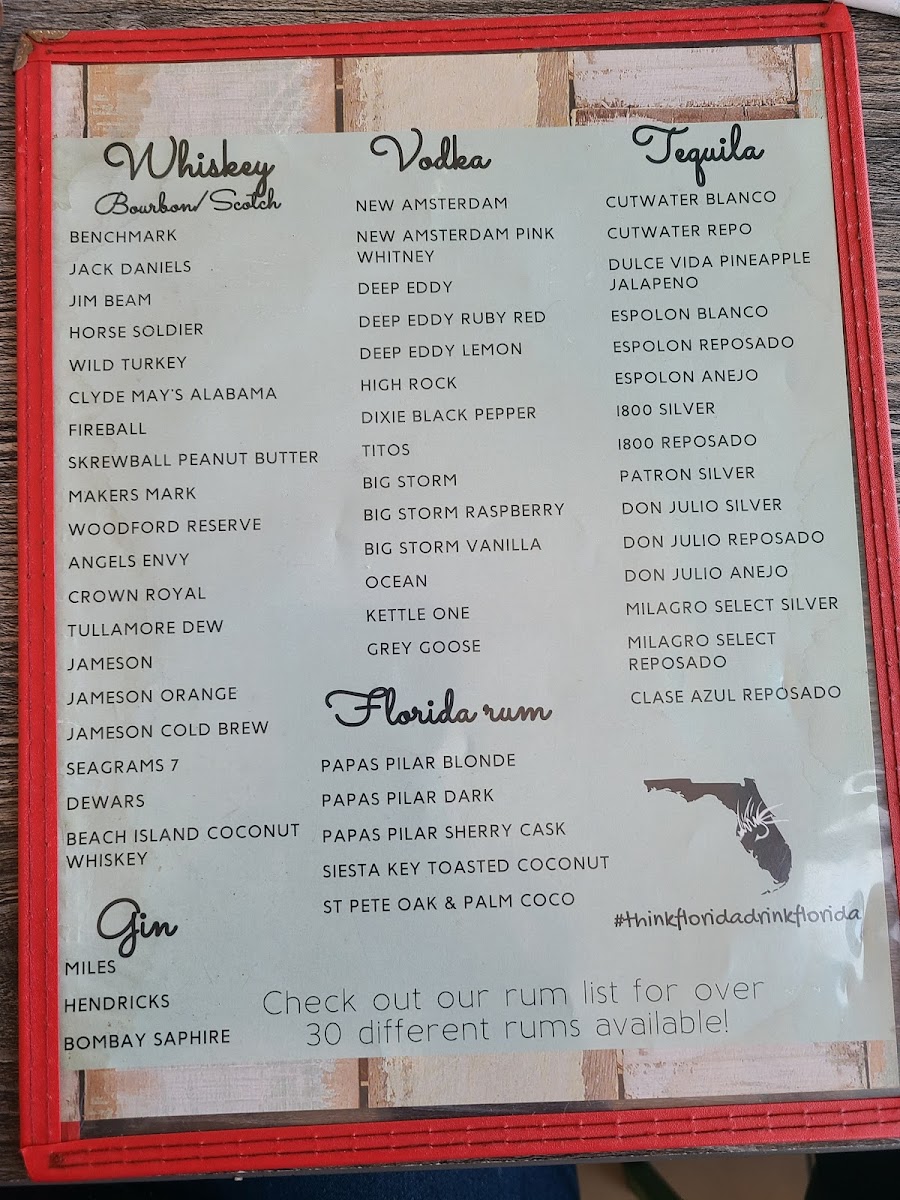 Whiskey
Bourbon/Scotch
BENCHMARK
JACK DANIELS
JIM BEAM
HORSE SOLDIER
WILD TURKEY
CLYDE MAY'S ALABAMA
FIREBALL
SKREWBALL PEANUT BUTTER
MAKERS MARK
WOODFORD RESERVE
ANGELS ENVY
CROWN ROYAL
TULLAMORE DEW
JAMESON
JAMESON ORANGE
JAMESON COLD BREW
SEAGRAMS 7
DEWARS
BEACH ISLAND COCONUT
WHISKEY
Gin
MILES
HENDRICKS
BOMBAY SAPHIRE
Vodka
NEW AMSTERDAM
NEW AMSTERDAM PINK
WHITNEY
DEEP EDDY
DEEP EDDY RUBY RED
DEEP EDDY LEMON
HIGH ROCK
DIXIE BLACK PEPPER
TITOS
BIG STORM
BIG STORM RASPBERRY
BIG STORM VANILLA
OCEAN
KETTLE ONE
GREY GOOSE
Florida rum
PAPAS PILAR BLONDE
PAPAS PILAR DARK
PAPAS PILAR SHERRY CASK
SIESTA KEY TOASTED COCONUT
ST PETE OAK & PALM COCO
Tequila
CUTWATER BLANCO
CUTWATER REPO
DULCE VIDA PINEAPPLE
JALAPENO
ESPOLON BLANCO
ESPOLON REPOSADO
ESPOLON ANEJO
1800 SILVER
1800 REPOSADO
PATRON SILVER
DON JULIO SILVER
DON JULIO REPOSADO
DON JULIO ANEJO
MILAGRO SELECT SILVER
MILAGRO SELECT
REPOSADO
CLASE AZUL REPOSADO
#thinkfloridadrinkflorida
Check out our rum list for over
30 different rums available!